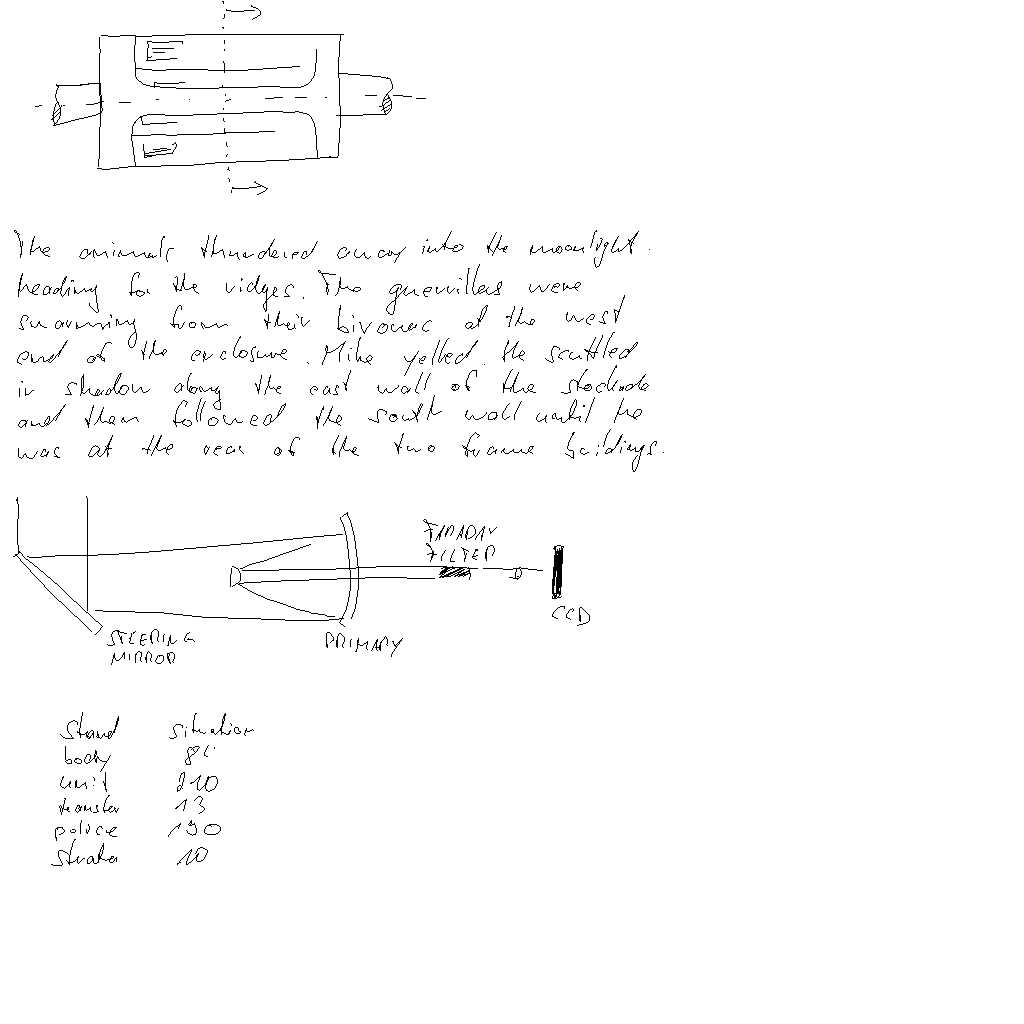 The animals thundered away into the moonlight.
heading for the ridges. The guerrillas were
swarming from their bivouac at the west
end of the enclosure. Mike yelled. He scuttled
in shadow along the east wall of the stockade
and then followed the south wall until he
was at the rear of the two frame buildings.
FARADAY
FILTER
CCD
STEERING
MIRROR
PRIMARY
Stand situation
body
unit 210
transfer 13
police 190
strata 10